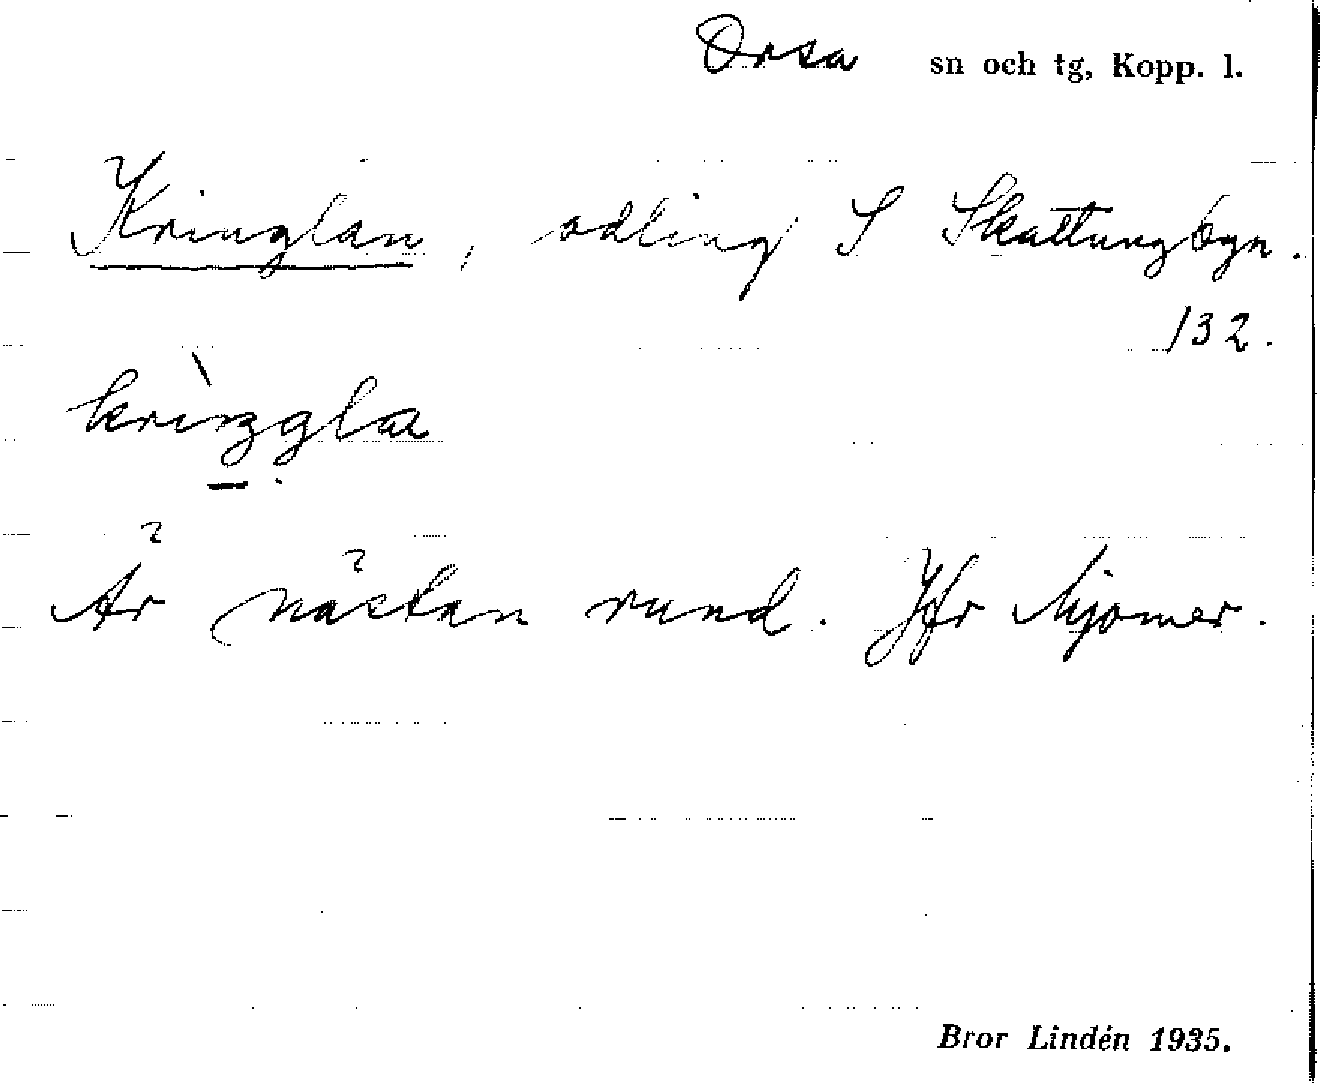 Orsa sn och tg, Kopp. l.
Kringlan, odling S Skattungbyn.
132.
krìŋgla
Är nästan rund. Jfr Mjomer.
Bror Lindén 1935.